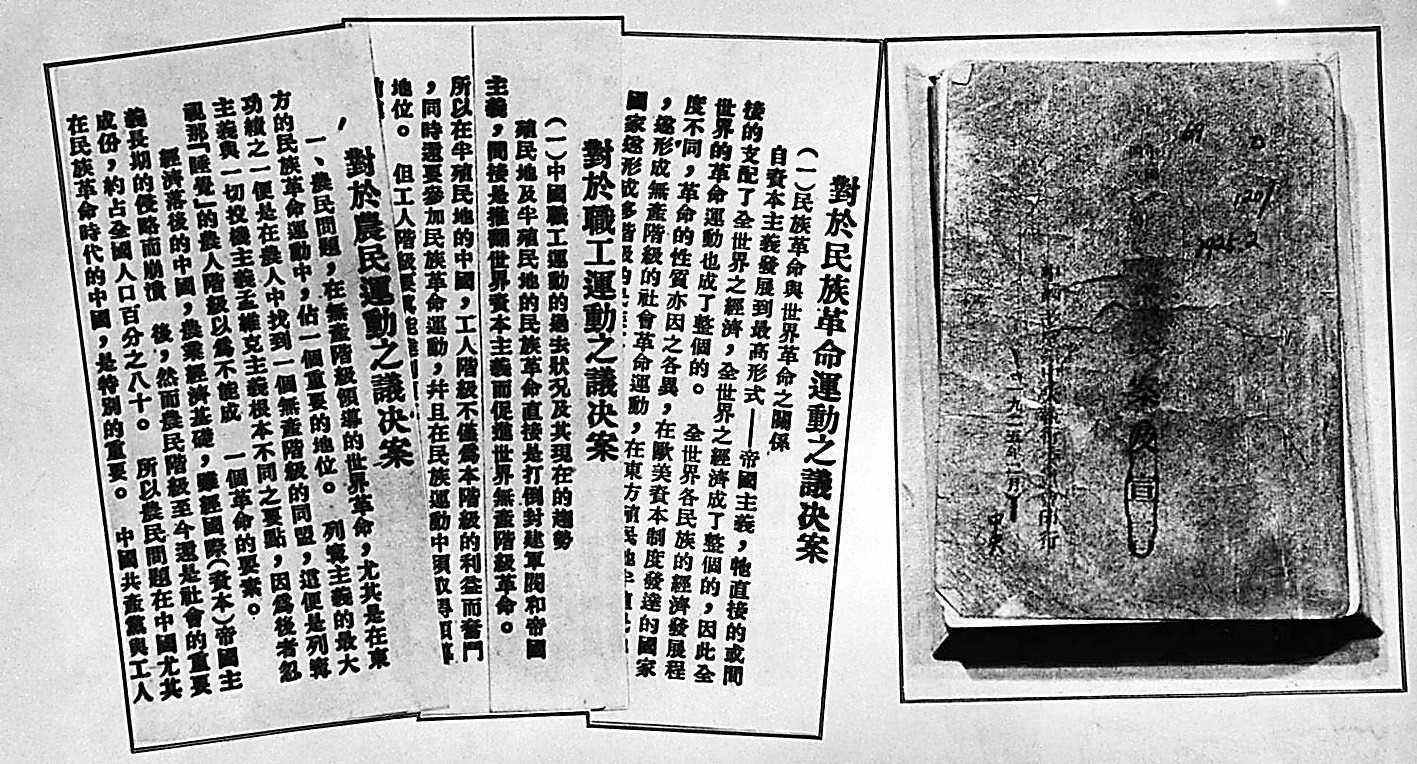 對於民族革命運動之議決案
(一)民族革命與世界革命之關係
自資本主義發展到最高形式——帝國主義,牠直接的或間
接的支配了全世界之經濟,全世界之經濟成了整個的,因此全
世界的革命運動也成了整個的。 全世界各民族的經濟發展程
度不同,革命的性質亦因之各異,在歐美資本制度發達的國家
,遂形成無產階級的社會革命運動,在東方殖民地半
國家遂形成多階級的
對於職工運動之議決案
(一)中國職工運動的過去狀况及其現在的趨勢
殖民地及半殖民地的民族革命直接是打倒封建軍閥和帝國
主義,間接是推翻世界資本主義而促進世界無產階級革命。
所以在半殖民地的中國,工人階級不僅爲本階級的利益而奮鬥
,同時還要參加民族革命運動,幷且在民族運動中須取得
地位。 但工人階級要
對於農民運動之議決案
一、農民問題,在無產階級領導的世界革命,尤其是在東
方的民族革命運動中,佔一個重要的地位。 列寗主義的最大
功績之一便是在農人中找到一個無產階級的同盟,這便是列寗
主義與一切投機主義孟雄克主義根本不同之要點,因爲後者忽
視那「睡覺」的農人階級以爲不能成 一個革命的要素。
經濟落後的中國,農業經濟基礎,雖經國際(資本)帝國主
義長期的侵略而崩潰 後,然而農民階級至今還是社會的重要
成份,約占全國人口百分之八十。 所以農民問題在中國尤其
在民族革命時代的中國,是特別的重要。 中國共產黨與工人
69
1201
1925.2
案及宣
一九二五年二月
中央
印行